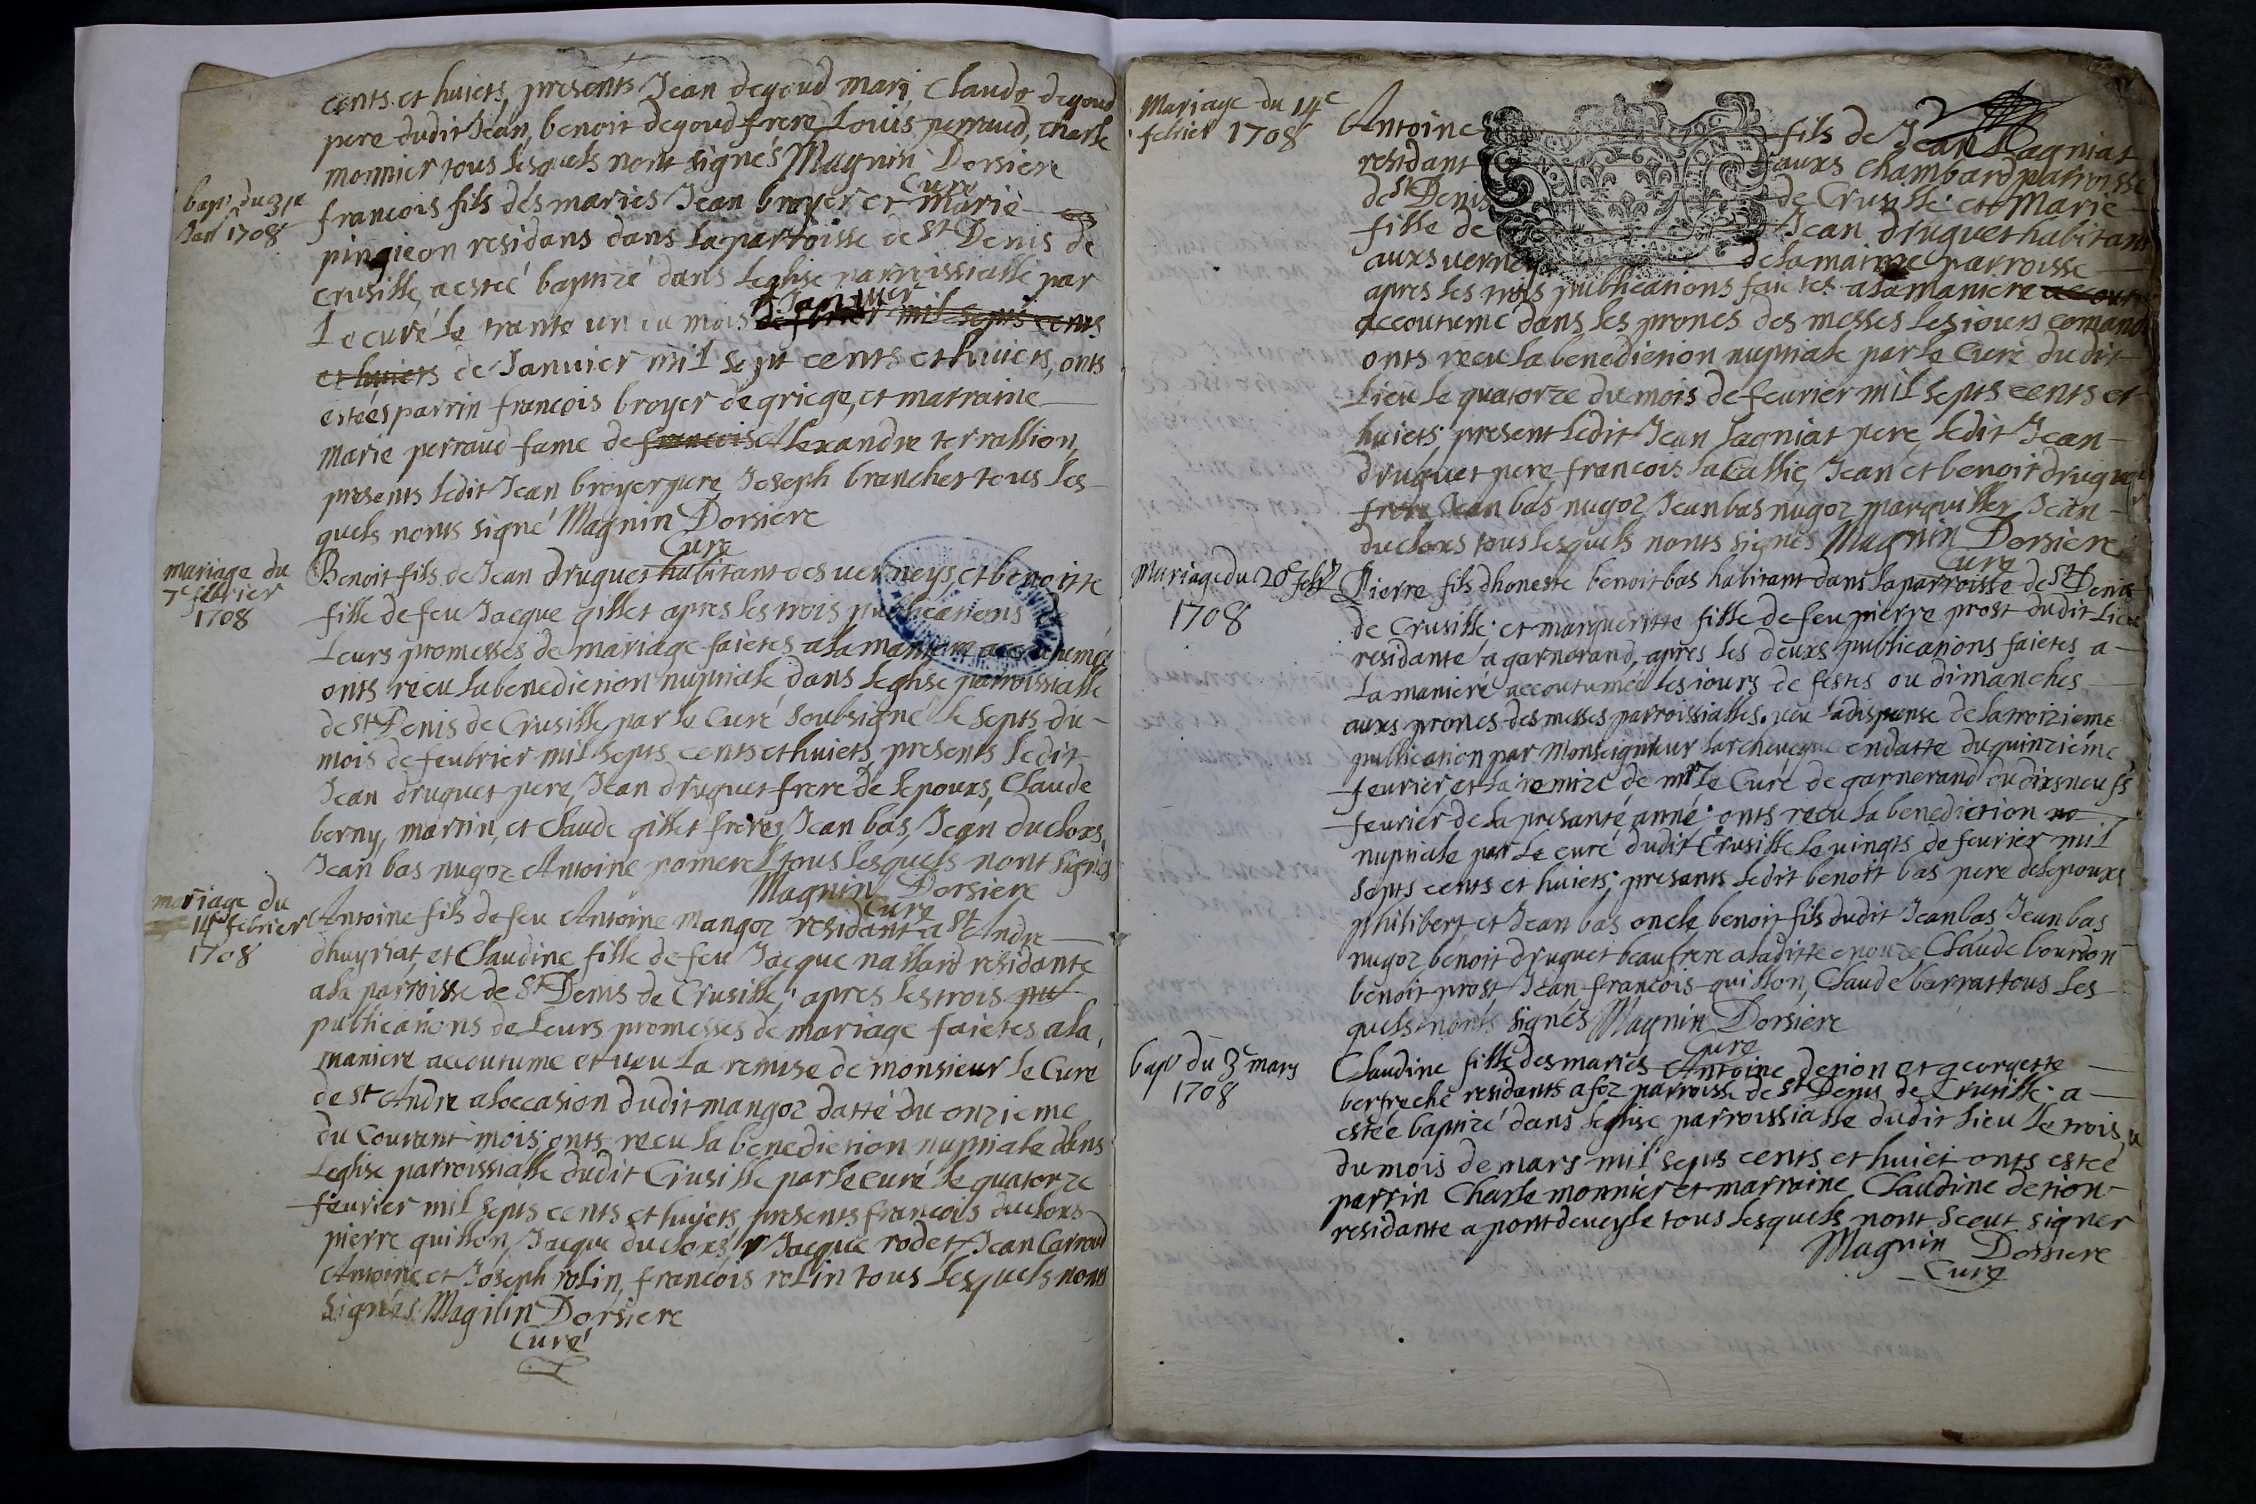 cents et huiets, presents Jean degoud mari, Claude degoud
pere dudit Jean, benoit degoud frere Louis perraud, charle
monnier tous lesquels nont signés Magnin Dorsiere
Curé
bapt. du 31e
Jan 1708
francois fils des mariés Jean broyer et Marie
pingieon residans dans la parroisse de St Denis de
Crusille, a estéé baptizé dans leglise parroissialle par
Le curé le trante un du mois de febrier mil septs cents
Janvier
et huiets de Janvier mil sept cents et huiets, onts
estées parrin francois broyer de griege, et marraine
Marie perraud fame de francois Alexandre terrallion,
presents ledit Jean broyer pere Joseph branches tous les
quels nonts signé Magnin Dorsiere
Curé
mariage du
7e febrier
1708
Benoit fils de Jean druguet habitant des verneys, et benoitte
fille de feu Jacque gillet apres les trois publications
Leurs promesses de mariage faictes a la maniere accoutumée
onts recu la benediction nuptiale dans leglise parroissialle
de St Denis de Crusille par le Curé soubsigné le septs du
mois de feubrier mil septs cents et huiets, presents ledit
Jean druguet pere, Jean druguet frere de lepoux, Claude
berny, martin, et Claude gillet freres, Jean bas, Jean ducloxs,
Jean bas nugoz Antoine pomerel tous lesquels nont signés
Magnin Dorsiere
Curé
mariage du
14e febrier
1708
Antoine fils de feu Antoine Mangoz residant a St Andre
dhuyriat, et Claudine fille de feu Jacque nallard residante
a la parroisse de St Denis de Crusille; apres les trois pu
publications de Leurs promesses de mariage faictes a la
maniere accoutume et veu la remise de monsieur le Curé
de St Andre a loccasion dudit mangoz datté du onzieme
du Courant mois; onts recu la benediction nuptiale dans
Leglise parroissialle dudit Crusille par le curé le quatorze
fevrier mil septs cents et huiets, presents francois ducloxs
pierre guillon, Jacque duclos, Jacque rodet, Jean Carroud
Antoine et Joseph rolin, francois rolin tous lesquels nonts
signés Magnin Dorsiere
Curé
Mariage du 14e
febrier 1708
Antoine fils de Jean Jagniat
residant auxs chambard parroisse
de St Denis de Crusille et Marie
fille de Jean druguet habitant
auxs verneys de la maime parroisse
apres les trois publications faictes a la maniere accout
accoutumé dans les prones des messes les iours comand
onts recu la benediction nuptiale par le Curé dudit
Lieu le quatorze du mois de feurier mil septs cents et
huiets; present ledit Jean Jagniat pere, ledit Jean
druguet pere, francois la Callie, Jean et benoit druguet
frere Jean bas nugoz, Jean bas nugoz marguiller, Jean
ducloxs tous lesquels nonts signés Magnin Dorsiere
Curé
Mariage du 20e feb
1708
Pierre fils dhoneste benoit bas habitant dans la parroisse de St Denis
de Crusille; et margueritte fille de feu pierre prost dudit Lieu
residante a garnerand, apres les deuxs publications faictes a
La maniere accoutumée les iours de festes ou dimanches
auxs prones des messes parroissialles. veu la dispense de la troizieme
publication par Monseigneur larcheveque en datte du quinziéme
feurier et la remize de mr le Curé de garnerand du dixsneufs
feurier de la presanté anné; onts recu la benediction no
nuptiale par le curé dudit Crusille le vingts de feurier mil
septs cents et huiets; presents ledit benoit bas pere de lepouxs
philibert et Jean bas oncle, benoit fils dudit Jean bas Jean bas
nugoz, benoit druguet beaufrere a laditte epouze, Claude bourdon
benoit prost, Jean francois guillon, Claude barrat tous les
quels nonts signés Magnin Dorsiere
Curé
bapt du 3e mars
1708
Claudine fille des mariés Antoine derion et georgette
berfreche residants a foz parroisse de St Denis de Crusille a
estée baptizé dans leglise parroissialle dudit lieu le trois
du mois de mars mil septs cents et huiet onts estéé
parrin Charle monnier et marraine Claudine derion
residante a pontdeveyle tous lesquels nont sceut signer
Magnin Dorsiere
Curé